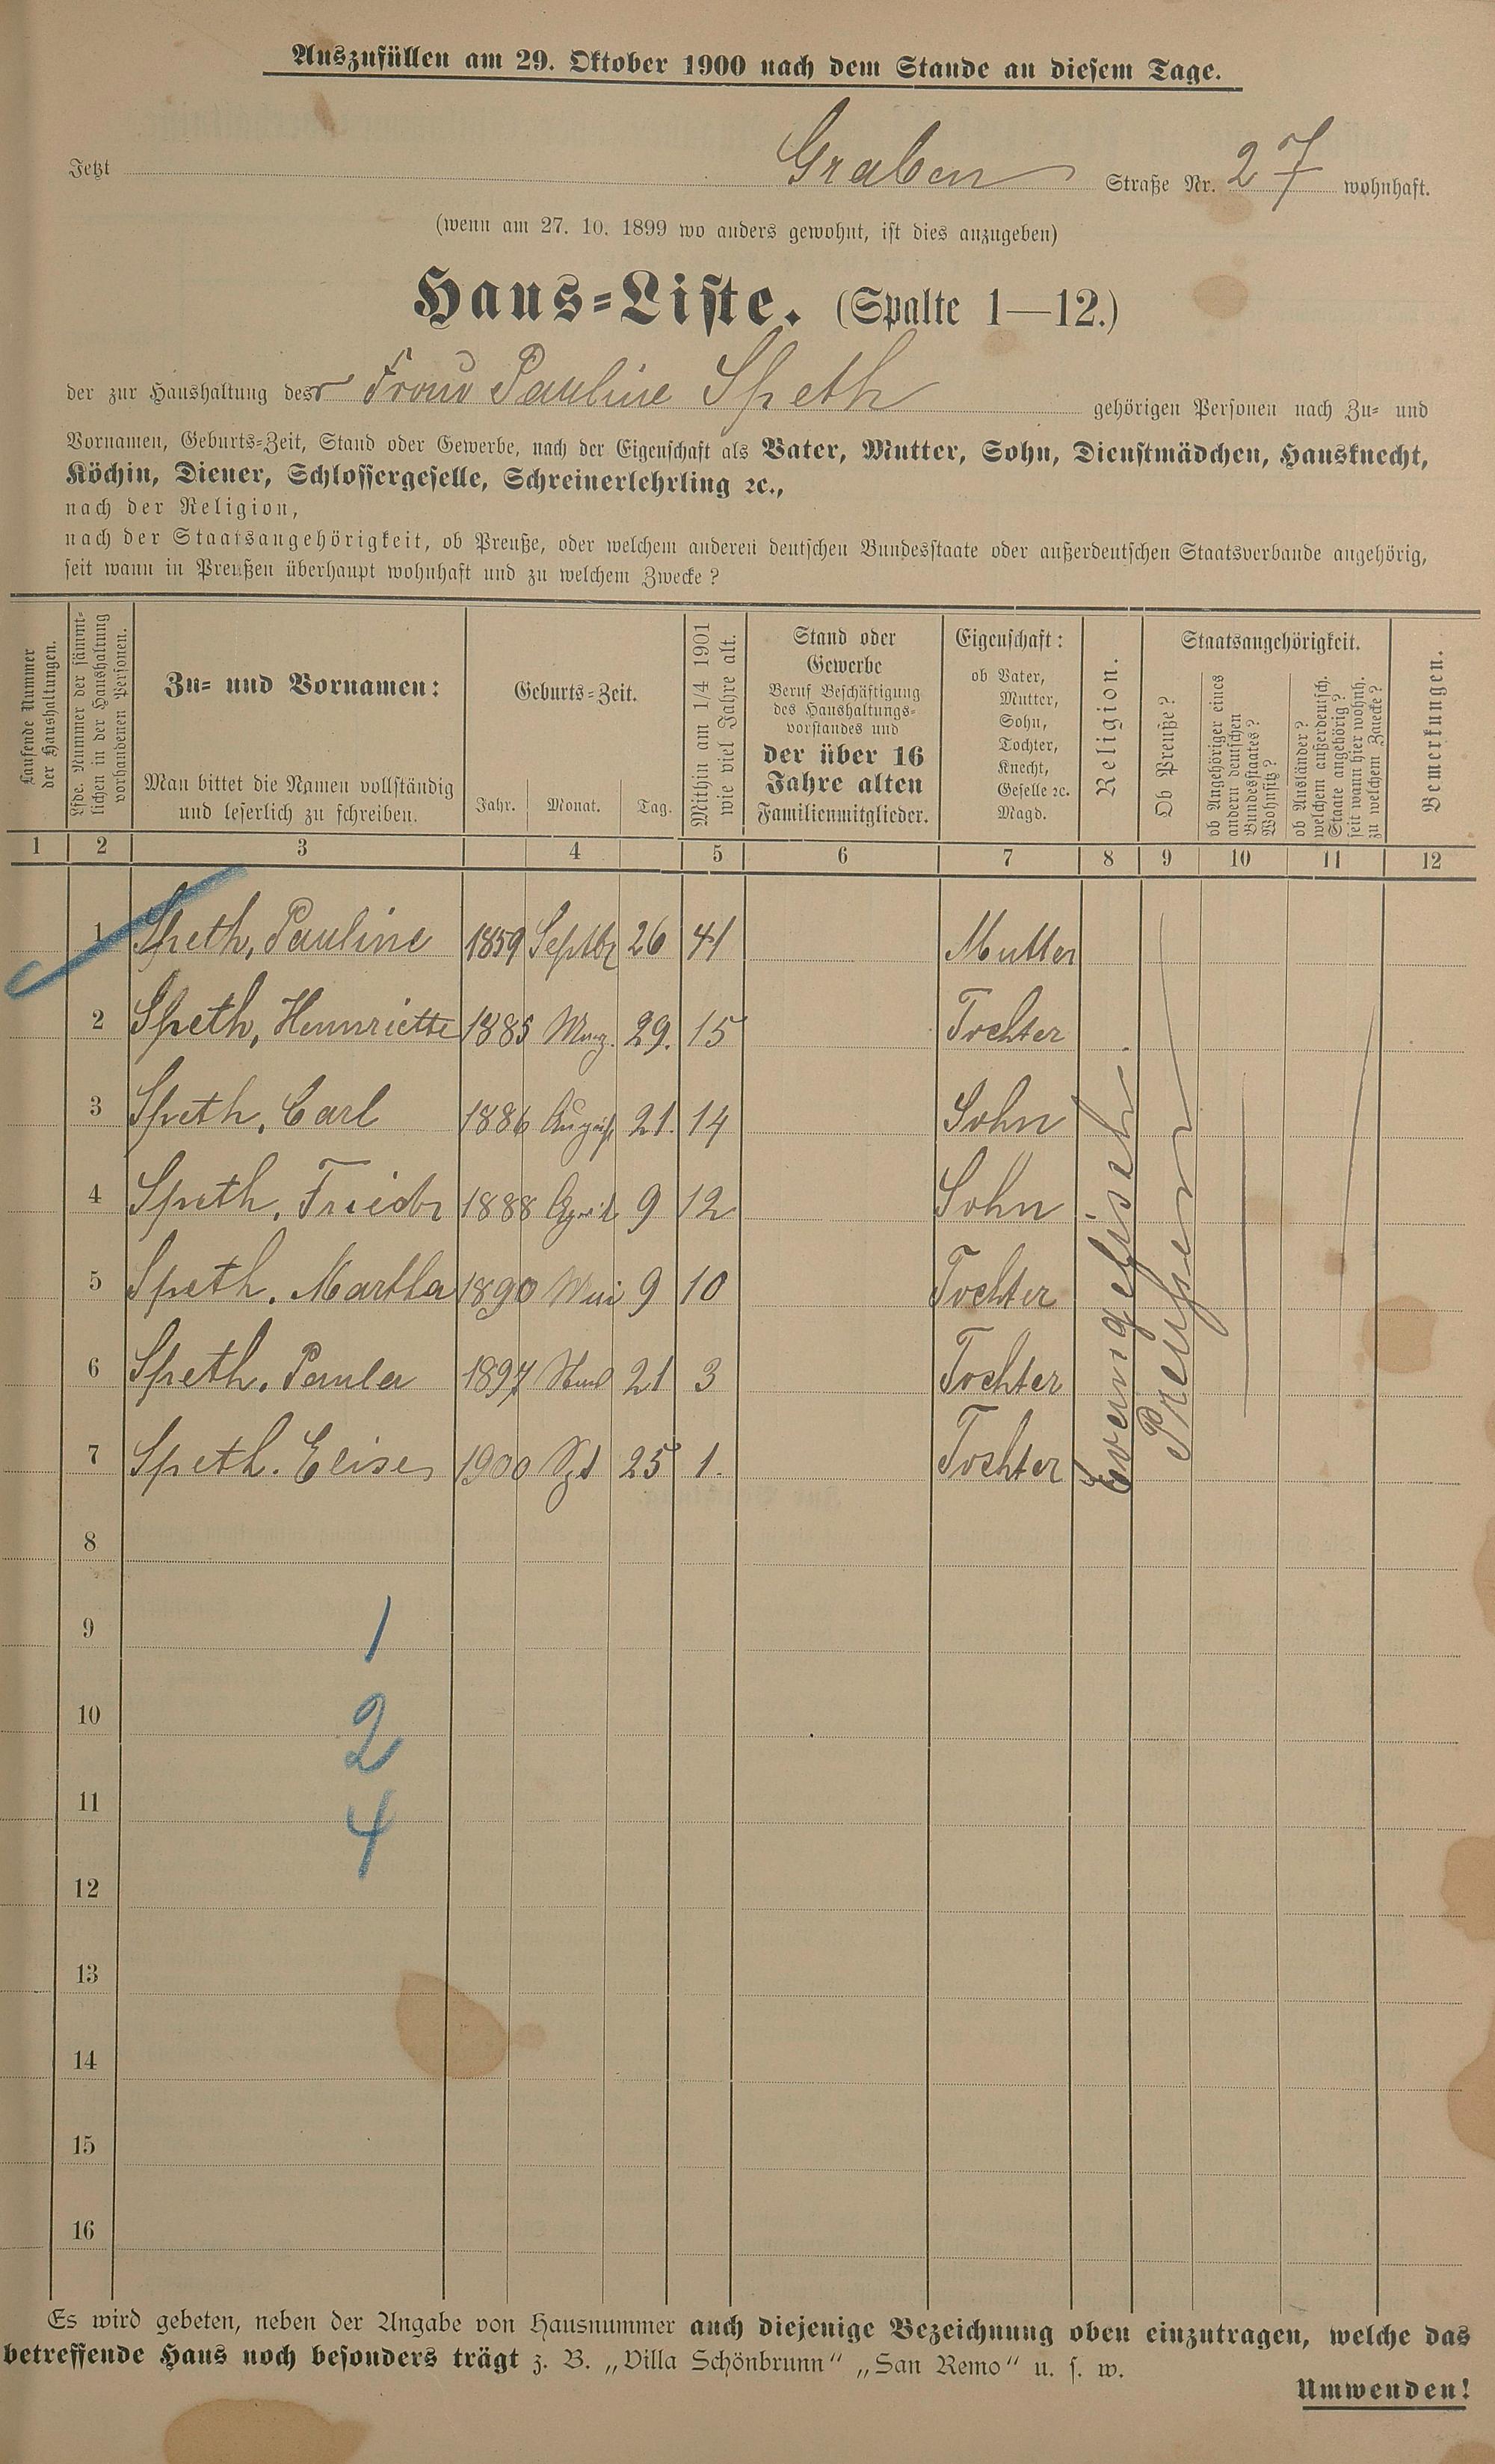 Auszufüllen am 29. Oktober 1900 nach dem Stande an diesem Tage.
Jetzt Graben Straße Nr. 27 wohnhaft.
(wenn am 27. 10. 1899 wo anders gewohnt, ist dies anzugeben)
Haus-Liste. (Spalte 1—12.)
der zur Haushaltung desr Frau Pauline Speth gehörigen Personen nach Zu- und
Vornamen, Geburts-Zeit, Stand oder Gewerbe, nach der Eigenschaft als Vater, Mutter, Sohn, Dienstmädchen, Hausknecht,
Köchin, Diener, Schlossergeselle, Schreinerlehrling ꝛc.,
nach der Religion,
nach der Staatsangehörigkeit, ob Preuße, oder welchem anderen deutschen Bundesstaate oder außerdeutschen Staatsverbande angehörig,
seit wann in Preußen überhaupt wohnhaft und zu welchem Zwecke?
Laufende Nummer
der Haushaltungen.
Lfde. Nummer der sämmt-
lichen in der Haushaltung
vorhandenen Personen.
Zu- und Vornamen:
Man bittet die Namen vollständig
und leserlich zu schreiben.
Geburts-Zeit.
Jahr. Monat. Tag.
Mithin am 1/4 1901
wie viel Jahre alt.
Stand oder
Gewerbe
Beruf Beschäftigung
des Haushaltungs-
vorstandes und
der über 16
Jahre alten
Familienmitglieder.
Eigenschaft:
ob Vater,
Mutter,
Sohn,
Tochter,
Knecht,
Geselle ꝛc.
Magd.
Religion.
Staatsangehörigkeit.
Ob Preuße?
ob Angehöriger eines
andern deutschen
Bundesstaates?
Wohnsitz?
ob Ausländer?
welchem außerdeutsch.
Staate angehörig?
seit wann hier wohnh.
zu welchem Zwecke?
Bemerkungen.
1 2 3 4 5 6 7 8 9 10 11 12
1 Speth, Pauline 1859 Septbr 26 41 Mutter
2 Speth, Hennriette 1885 Merz. 29. 15 Tochter
3 Speth, Carl 1886 August 21. 14 Sohn
4 Speth, Friedr 1888 April 9 12 Sohn
5 Speth, Martha 1890 Mai 9 10 Tochter
6 Speth, Paula 1897 21 3 Tochter
7 Speth. Elise 1900 25 1. Tochter
Evangelisch.
Preußen
8
9 1
10 2
11 4
12
13
14
15
16
Es wird gebeten, neben der Angabe von Hausnummer auch diejenige Bezeichnung oben einzutragen, welche das
betreffende Haus noch besonders trägt z. B. „Villa Schönbrunn“ „San Remo“ u. s. w.
Umwenden!